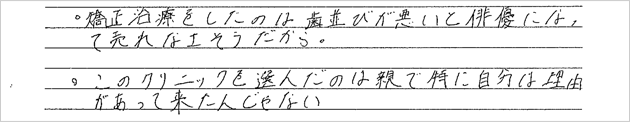 。矯正治療をしたのは歯並びが悪いと俳優になっ
て売れなさそうだから。
。このクリニックを選んだのは親で特に自分は理由
があって来たんじゃない